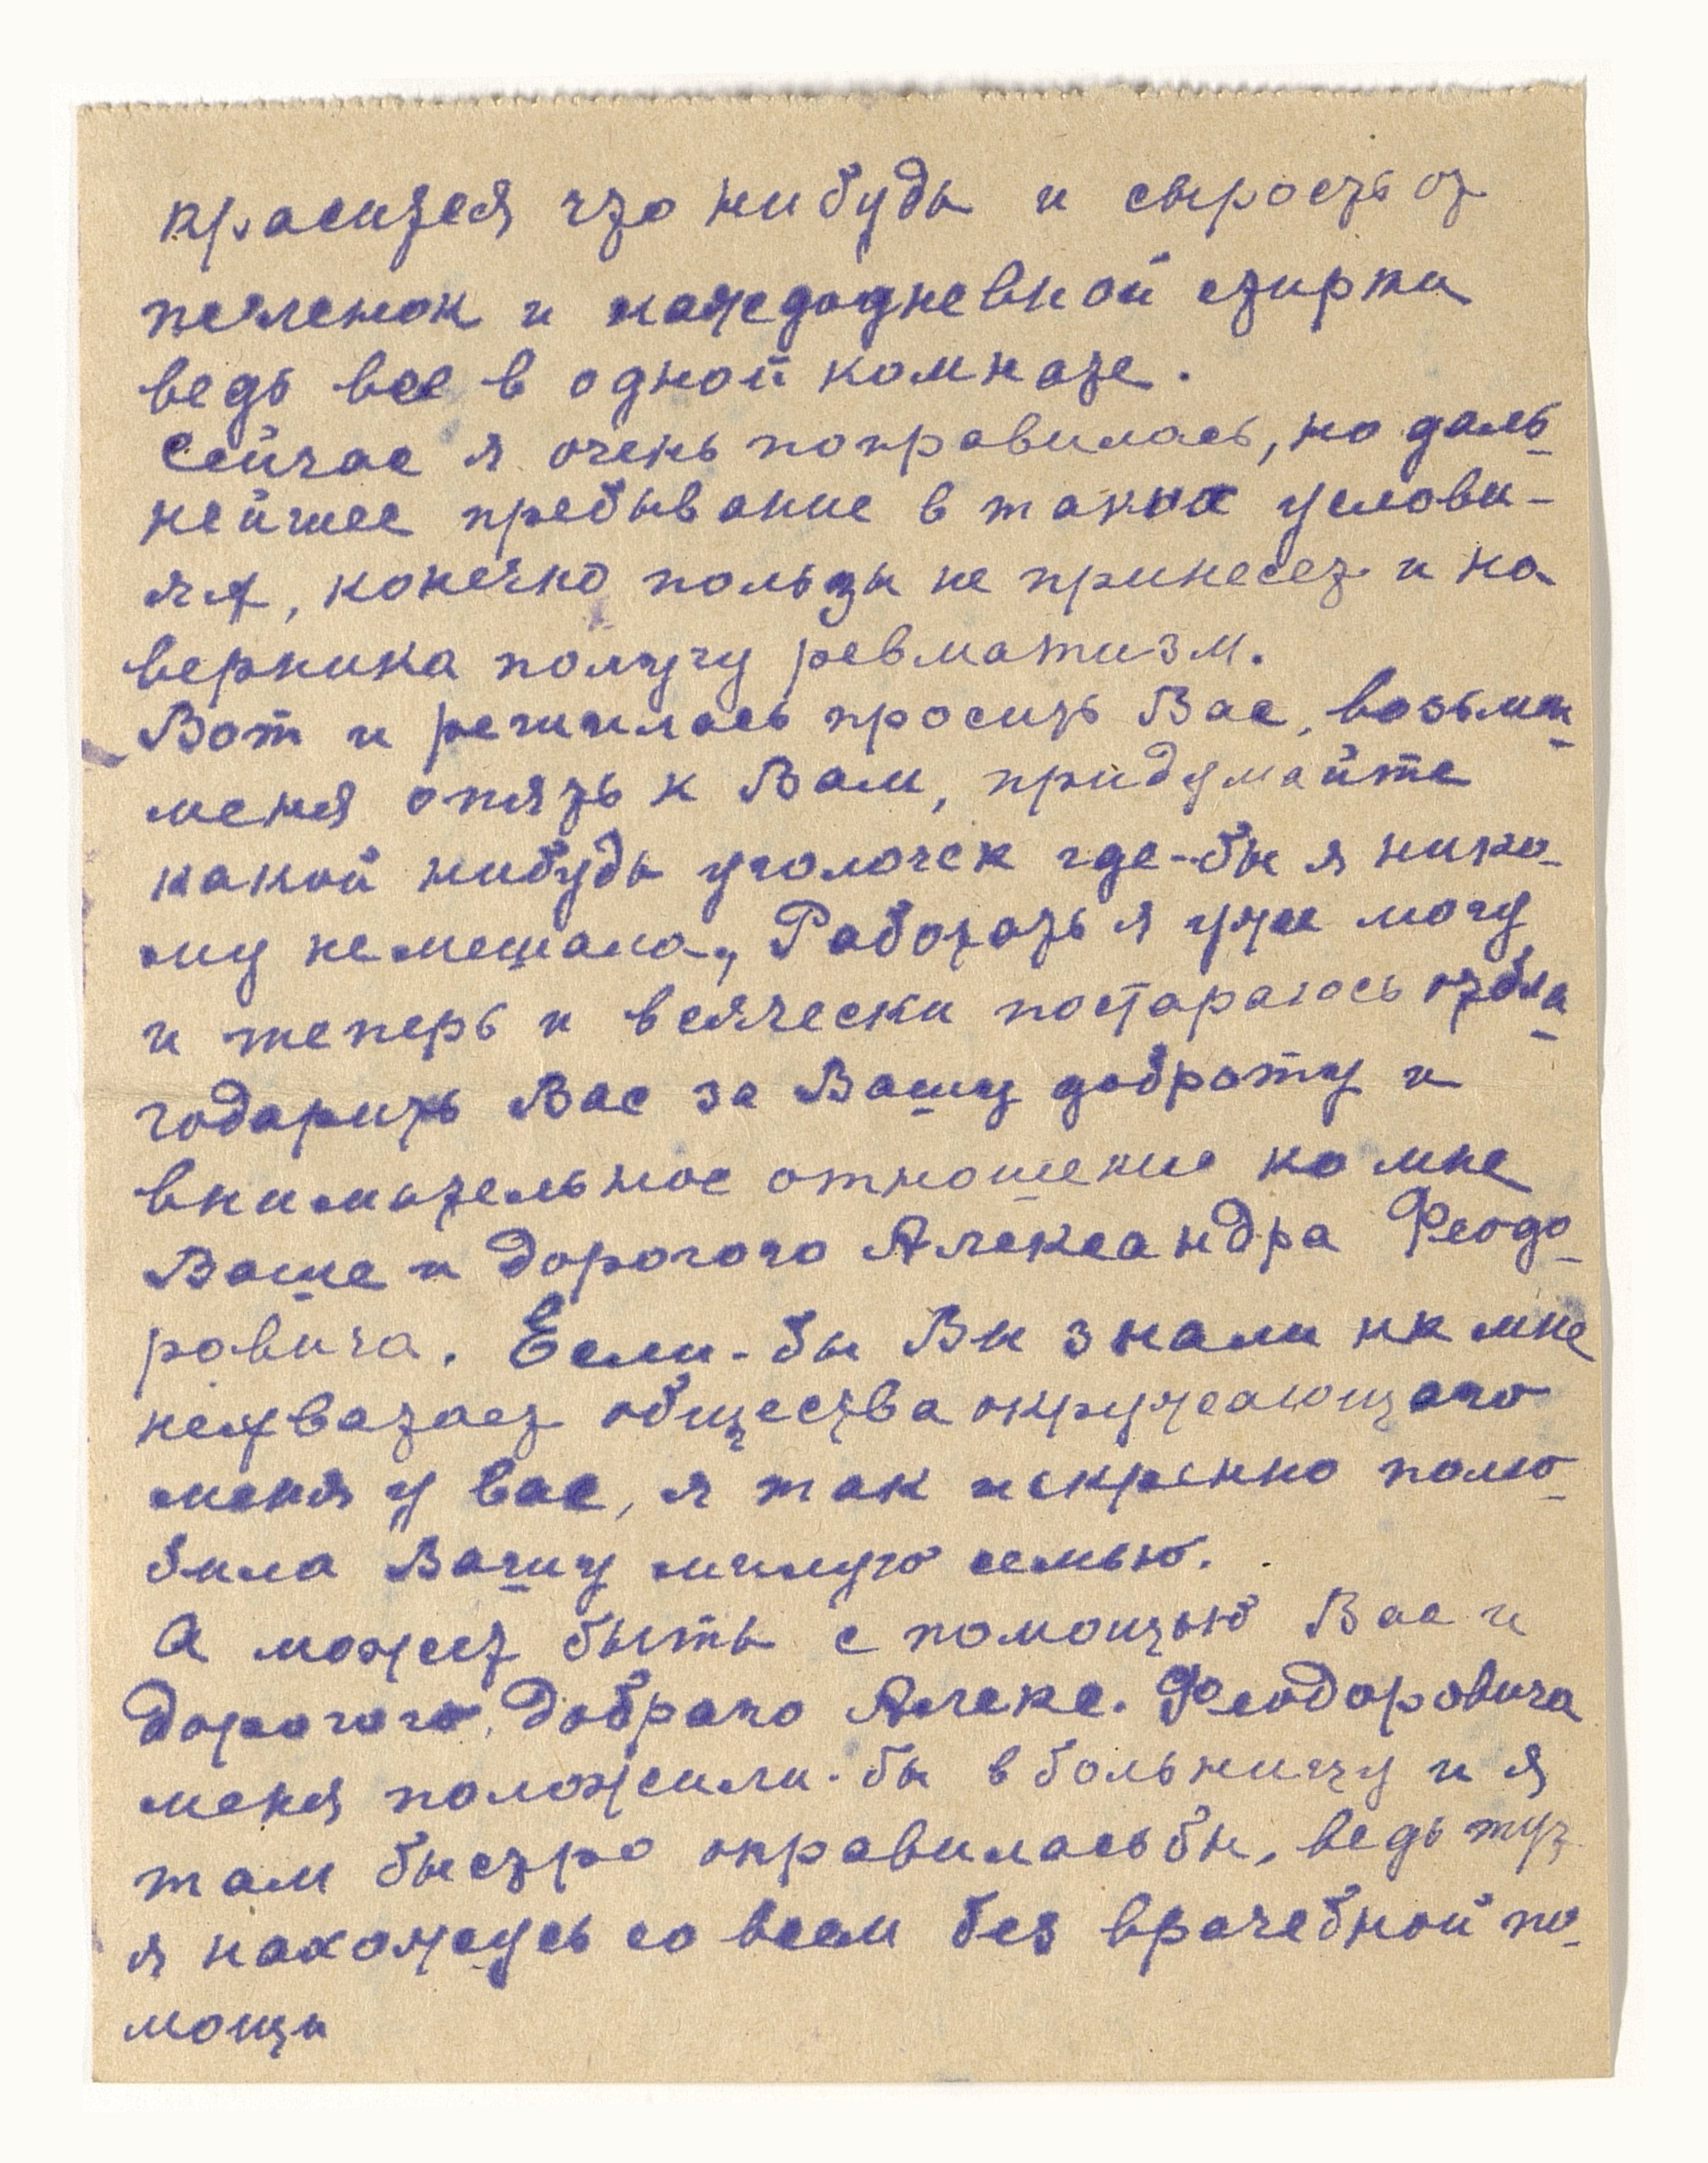 красится что нибудь и сырость от
пеленок и каждодневной стирки
ведь все в одной комнате.
Сейчас я очень поправилась, но даль-
нейшее пребывание в таких услови-
ях, конечно пользы не принесет и на
верника получу ревматизм.
Вот и решилась просить Вас, возьми
меня опять к Вам, придумайте
какой нибудь уголочек где-бы я нико-
му не мешала, Работать я уже могу
и теперь и всячески постараюсь отбла-
годарить Вас за Вашу доброту и
внимательное отношение ко мне
Ваше и дорогого Александра Феодо-
ровича. Если-бы Вы знали как мне
нехватает общества окружающаго
меня у вас, я так искренно полю-
била Вашу милую семью.
А может быть с помощью Вас и
дорогого, добраго Алекс. Феодоровича
меня положили-бы в больницу и я
там быстро оправилась бы, ведь тут
я нахожусь со всем без врачебной по-
мощи